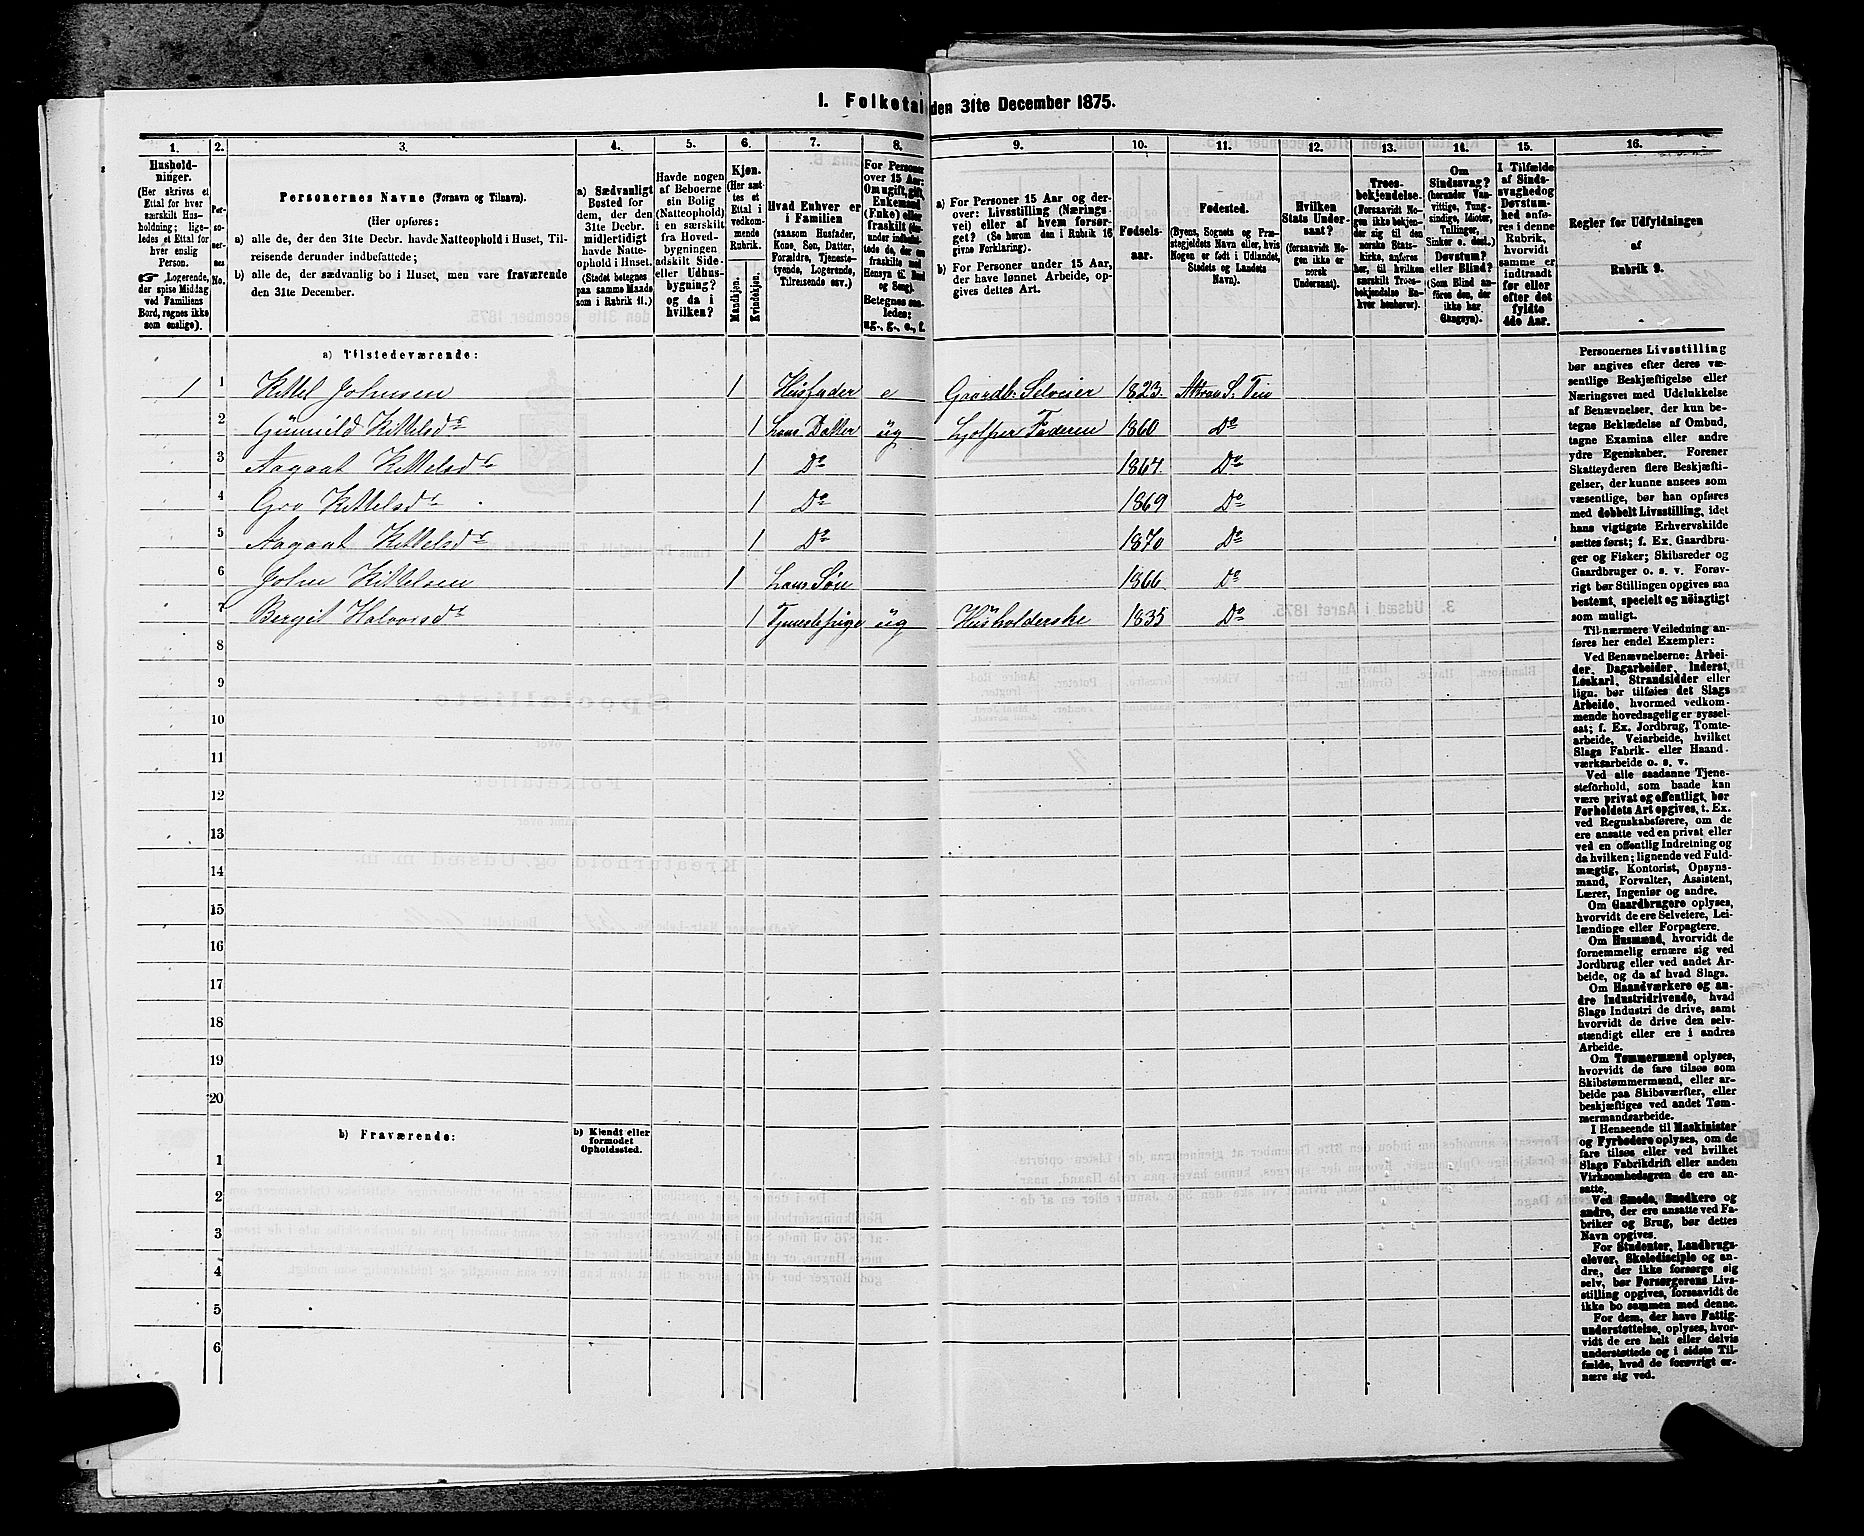 I. Folketal den 31te December 1875.
1. 2. 3. 4. 5. 6. 7. 8. 9. 10. 11. 12. 13. 14. 15. 16.
Hushold-
ninger.
(Her skrives et
Ettal for hver
særskilt Hus-
holdning; lige-
ledes et Ettal for
hver enslig
Person.
☞ Logerende,
der spise Middag
ved Familiens
Bord, regnes ikke
som enslige).
Per-
so-
ner-
nes
No.
Personernes Navne (Fornavn og Tilnavn).
(Her opføres:
a) alle de, der den 31te Decbr. havde Natteophold i Huset, Til-
reisende derunder indbefattede;
b) alle de, der sædvanlig bo i Huset, men vare fraværende
den 31te December.
a) Sædvanligt
Bosted for
dem, der den
31te Decbr.
midlertidigt
havde Natte-
ophold i Huset.
(Stedet betegnes
paa samme Maade
som i Rubrik 11.)
Havde nogen
af Beboerne
sin Bolig
(Natteophold)
i en særskilt
fra Hoved-
bygningen
adskilt Side-
eller Udhus-
bygning?
og da i
hvilken?
Kjøn.
(Her sæt-
tes et
Ettal i
vedkom-
mende
Rubrik.
Mandkjøn.
Kvindekjøn.
Hvad Enhver er
i Familien
(saasom Husfader,
Kone, Søn, Datter,
Forældre, Tjeneste-
tyende, Logerende,
Tilreisende osv.)
For Personer
over 15 Aar:
Om ugift, gift,
Enkemand
(Enke) eller
fraskilt
Betegnes saa-
ledes:
ug., g., e., f.
a) For Personer 15 Aar og der-
over: Livsstilling (Nærings-
vei) eller af hvem forsør-
get? (Se herom den i Rubrik 16
givne Forklaring).
b) For Personer under 15 Aar,
der have lønnet Arbeide, op-
gives dettes Art.
Fødsels-
aar.
Fødested.
(Byens, Sognets og Præ-
stegjeldets Navn eller, hvis
Nogen er født i Udlandet,
Stedets og Landets
Navn).
Hvilken
Stats Under-
saat?
(forsaavidt No-
gen ikke er
norsk
Undersaat).
Troes-
bekjendelse.
(Forsaavidt No-
gen ikke bekjen-
der sig til den
norske Stats-
kirke, anføres
her, til hvilken
særskilt Troes-
bekjendelse En-
hver henhører).
Om
Sindssvag?
(herunder Van-
vittige, Tung-
sindige, Idioter,
Tullinger,
Sinker o. desl.)
Døvstum?
eller Blind?
(Som Blind an-
føres den, der
ikke har
Gangsyn).
I Tilfælde
af Sinds-
svaghed og
Døvstum-
hed anfø-
res i denne
Rubrik,
hvorvidt
samme er
indtraadt
før eller
efter det
fyldte
4de Aar.
Regler for Udfyldningen
af
Rubrik 9.
a) Tilstedeværende:
1 1 Kittel Johnsen 1 Husfader e Gaardb. Selveier 1823 Attraa S. Tin
2 Gunnild Kittelsdr 1 hans Datter ug hjelper Faderen 1860 Do
3 Aagaat Kittelsdr 1 Do 1864 Do
4 Gro Kittelsdr 1 Do 1869 Do
5 Aagaat Kittelsdr 1 Do 1870 Do
6 John Kittelsen 1 hans Søn 1866 Do
7 Bergit Halvorsdr 1 Tjenestepige ug Husholderske 1835 Do
8
9
10
11
12
13
14
15
16
17
18
19
20
b) Fraværende:
b) Kjendt eller
formodet
Opholdssted.
1
2
3
4
5
6
Personernes Livsstilling
bør angives efter deres væ-
sentlige Beskjæftigelse eller
Næringsvei med Udelukkelse
af Benævnelser, der kun be-
tegne Beklædelse af Ombud,
tagne Examina eller andre
ydre Egenskaber. Forener
Skatteyderen flere Beskjæfti-
gelser, der kunne ansees som
væsentlige, bør han opføres
med dobbelt Livsstilling, idet
hans vigtigste Erhvervskilde
sættes først; f. Ex. Gaardbru-
ger og Fisker; Skibsreder og
Gaardbruger o. s. v. Forøv-
rigt bør Stillingen opgives saa
bestemt, specielt og nøiagtigt
som muligt.
Til nærmere Veiledning an-
føres her endel Exempler:
Ved Benævnelserne: Arbei-
der, Dagarbeider, Inderst,
Løskarl, Strandsidder eller
lign. bør tilføies det Slags
Arbeide, hvormed vedkom-
mende hovedsagelig er syssel-
sat; f. Ex. Jordbrug, Tomte-
arbeide, Veiarbeide, hvilket
Slags Fabrik- eller Haand-
værksarbeide o. s. v.
Ved alle saadanne Tjene-
steforhold, som baade kan
være privat og offentligt, bør
Forholdets Art opgives, t. Ex.
ved Regnskabsførere, om de
ere ansatte ved en privat eller
ved en offentlig Indretning og
da hvilken; lignende ved Fuld-
mægtig, Kontorist, Opsyns-
mand, Forvalter, Assistent,
Lærer, Ingeniør og andre.
Om Gaardbrugere oplyses,
hvorvidt de ere Selveiere, Lei-
lændinge eller Forpagtere.
Om Husmænd, hvorvidt de
fornemmelig ernære sig ved
Jordbrug eller ved andet Ar-
beide, og da af hvad Slags.
Om Haandværkere og an-
dre Industridrivende, hvad
Slags Industri de drive, samt
hvorvidt de drive den selv-
stændigt eller ere i andres
Arbeide.
Om Tømmermænd oplyses,
hvorvidt de fare tilsøs som
Skibstømmermænd, eller ar-
beide paa Skibsværfter, eller
beskjæftiges ved andet Tøm-
mermandsarbeide.
I Henseende til Maskinister
og Fyrbødere oplyses, om de
fare tilsøs eller ved hvilket
Slags Fabrikdrift eller anden
Virksomhedsgren de ere an-
satte.
Ved Smede, Snedkere og
andre, der ere ansatte ved Fa-
briker og Brug, bør dettes
Navn opgives.
For Studenter, Landbrugs-
elever, Skoledisciple og an-
dre, der ikke forsørge sig
selv, bør Forsørgerens Livs-
stilling opgives, forsaavidt de
ikke bo sammen med denne.
For dem, der have Fattig-
understøttelse, oplyses, hvor-
vidt de ere helt eller delvis
understøttede og i sidste Til-
fælde, hvad de forøvrigt er-
nære sig ved.